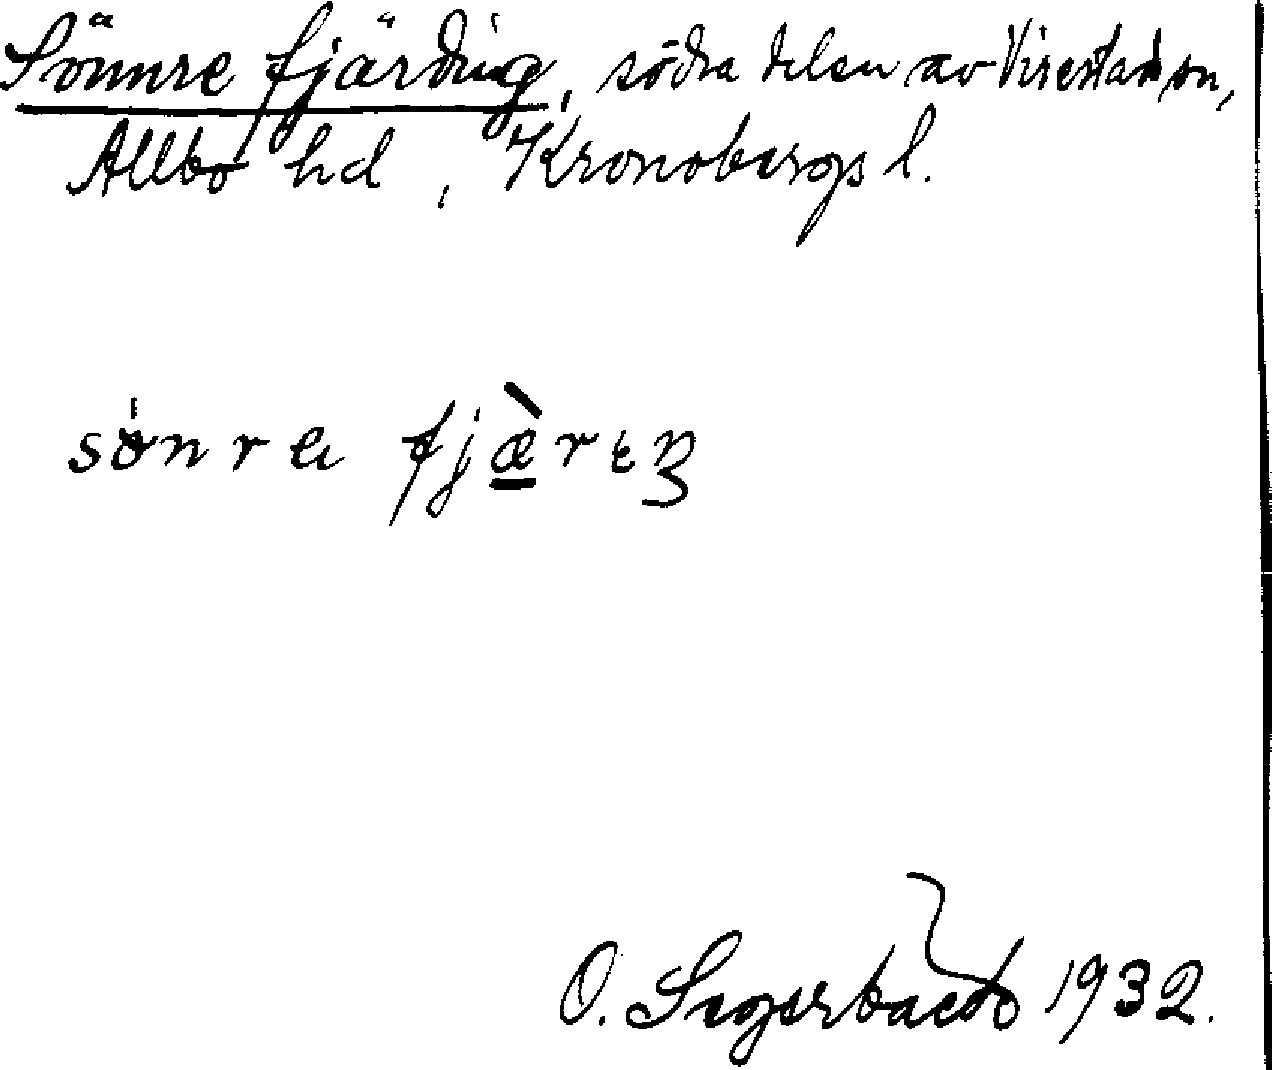 Sönnre fjärding, södra delen av Virestad sn,
Allbo hd, Kronobergs l.
O. Segerbäck 1932.